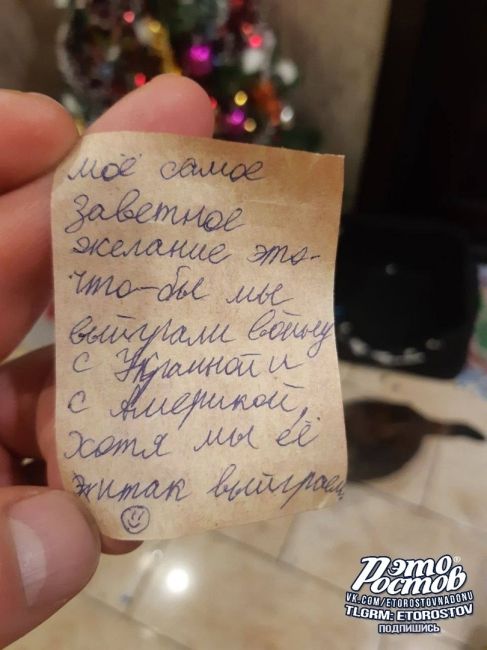 моё самое
заветное
желание это-
что-бы мы
выйграли войну
с Украиной и
с Америкой,
хотя мы её
житак выйграем
Rэто
Ростов
VK.COM/ETOROSTOVNADONU
TLGRM: ETOROSTOV
ПОДПИШИСЬ